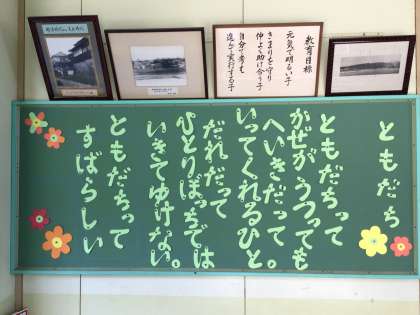 教育目標
元気で明るい子
きまりを守り
仲よく助け合う子
自分で考え
進んで実行する子
ともだち
ともだちって
かぜが うつっても
へいきだって
いってくれるひと。
だれだって
ひとりぼっちでは
いきてゆけない。
ともだちって
すばらしい